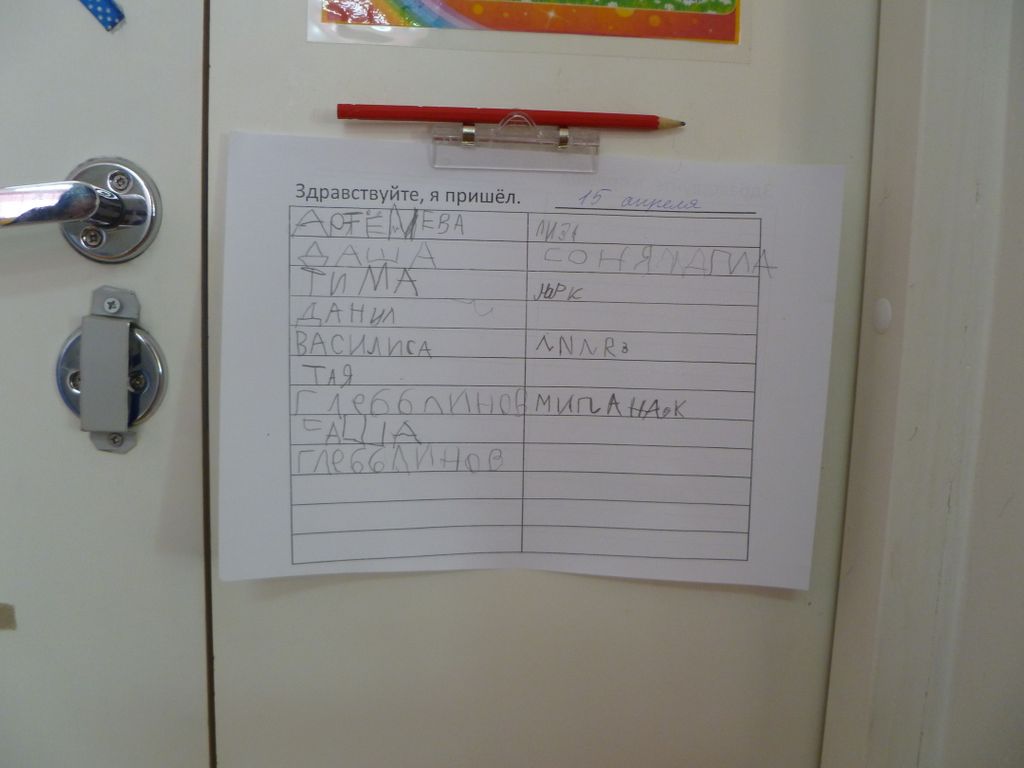 Здравствуйте, я пришёл. 15 апреля
АРТЁМ ЕВА
ЛИЗА
ДАША
СОНЯ
ТИМА
ДАНИЛ
ВАСИЛИСА
ТАЯ
ГЛЕББЛИНОВ
САША
ГЛЕББЛИНОВ